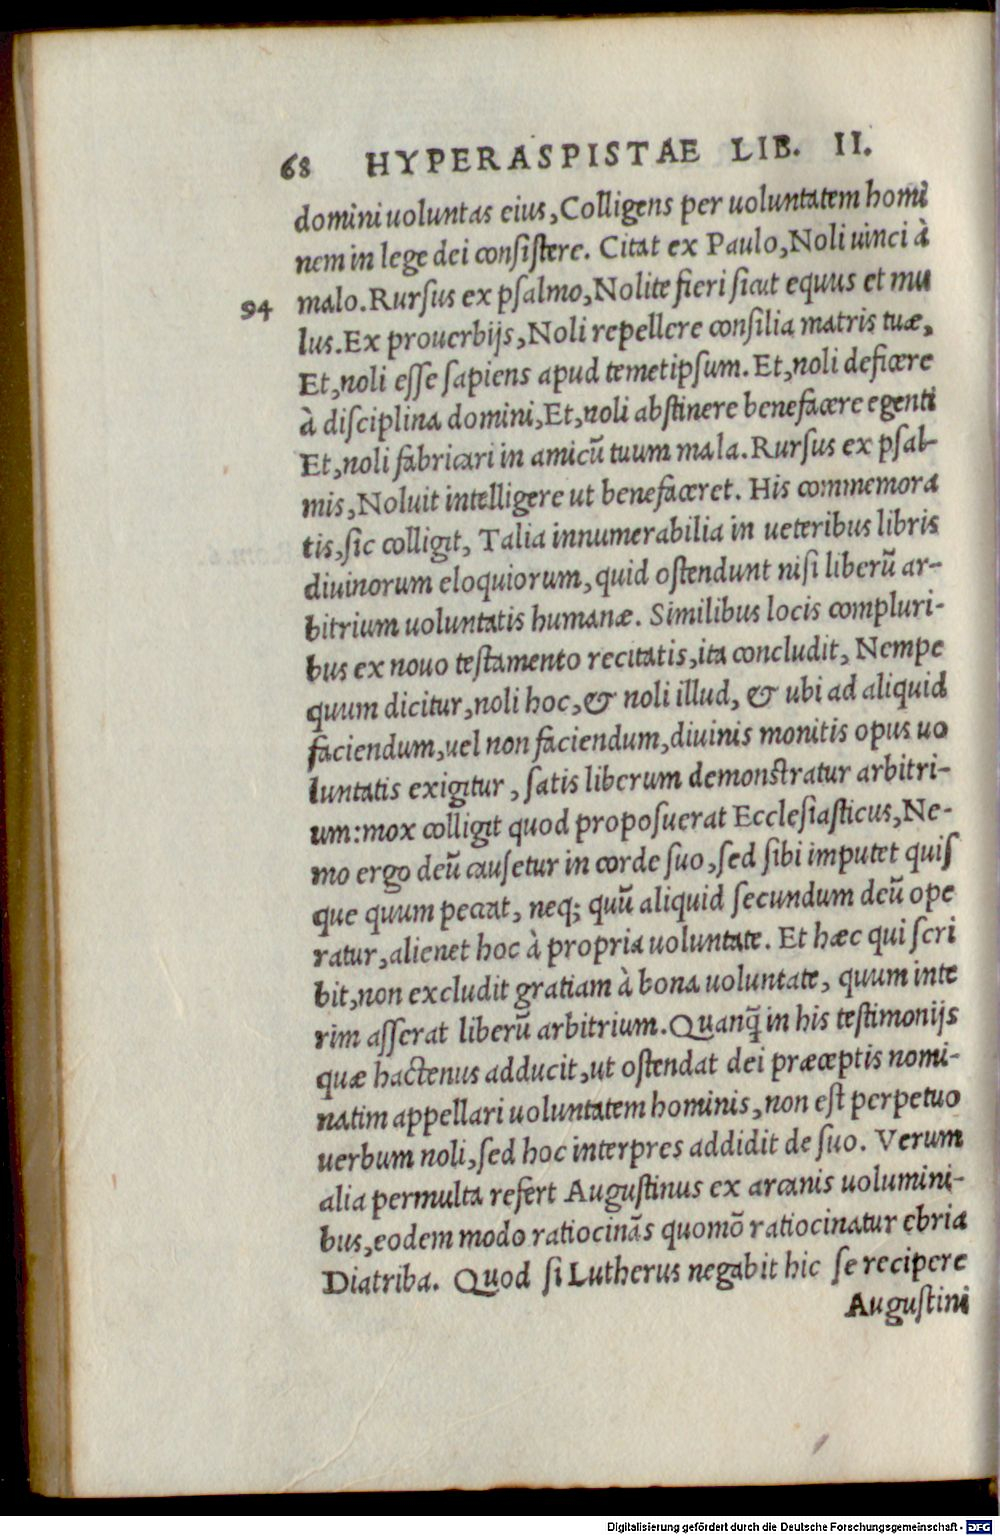 68 HYPERASPISTAE LIB. II.
domini uoluntas eius, Colligens per uoluntatem homi
nem in lege dei consistere. Citat ex Paulo, Noli uinci à
94 malo. Rursus ex psalmo, Nolite fieri sicut equus et mu
lus. Ex prouerbijs, Noli repellere consilia matris tuæ,
Et, noli esse sapiens apud temetipsum. Et, noli deficere
à disciplina domini, Et, noli abstinere benefacere egenti
Et, noli fabricari in amicū tuum mala. Rursus ex psal-
mis, Noluit intelligere ut benefaceret. His commemora
tis, sic colligit, Talia innumerabilia in ueteribus libris
diuinorum eloquiorum, quid ostendunt nisi liberū ar-
bitrium uoluntatis humanæ. Similibus locis compluri-
bus ex nouo testamento recitatis, ita concludit, Nempe
quum dicitur, noli hoc, & noli illud, & ubi ad aliquid
faciendum, uel non faciendum, diuinis monitis opus uo
luntatis exigitur, satis liberum demonstratur arbitri-
um: mox colligit quod proposuerat Ecclesiasticus, Ne-
mo ergo deū causetur in corde suo, sed sibi imputet quis
que quum peccat, neq; quū aliquid secundum deū ope
ratur, alienet hoc à propria uoluntate. Et hæc qui scri
bit, non excludit gratiam à bona uoluntate, quum inte
rim asserat liberū arbitrium. Quanq̃ in his testimonijs
quæ hactenus adducit, ut ostendat dei præceptis nomi-
natim appellari uoluntatem hominis, non est perpetuo
uerbum noli, sed hoc interpres addidit de suo. Verum
alia permulta refert Augustinus ex arcanis uolumini-
bus, eodem modo ratiocinãs quomõ ratiocinatur ebria
Diatriba. Quod si Lutherus negabit hic se recipere
Augustini
Digitalisierung gefördert durch die Deutsche Forschungsgemeinschaft - DFG